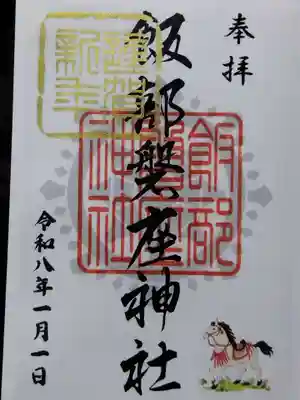 奉拝
飯部磐座神社
令和八年一月一日
謹賀新年
飯部磐座神社